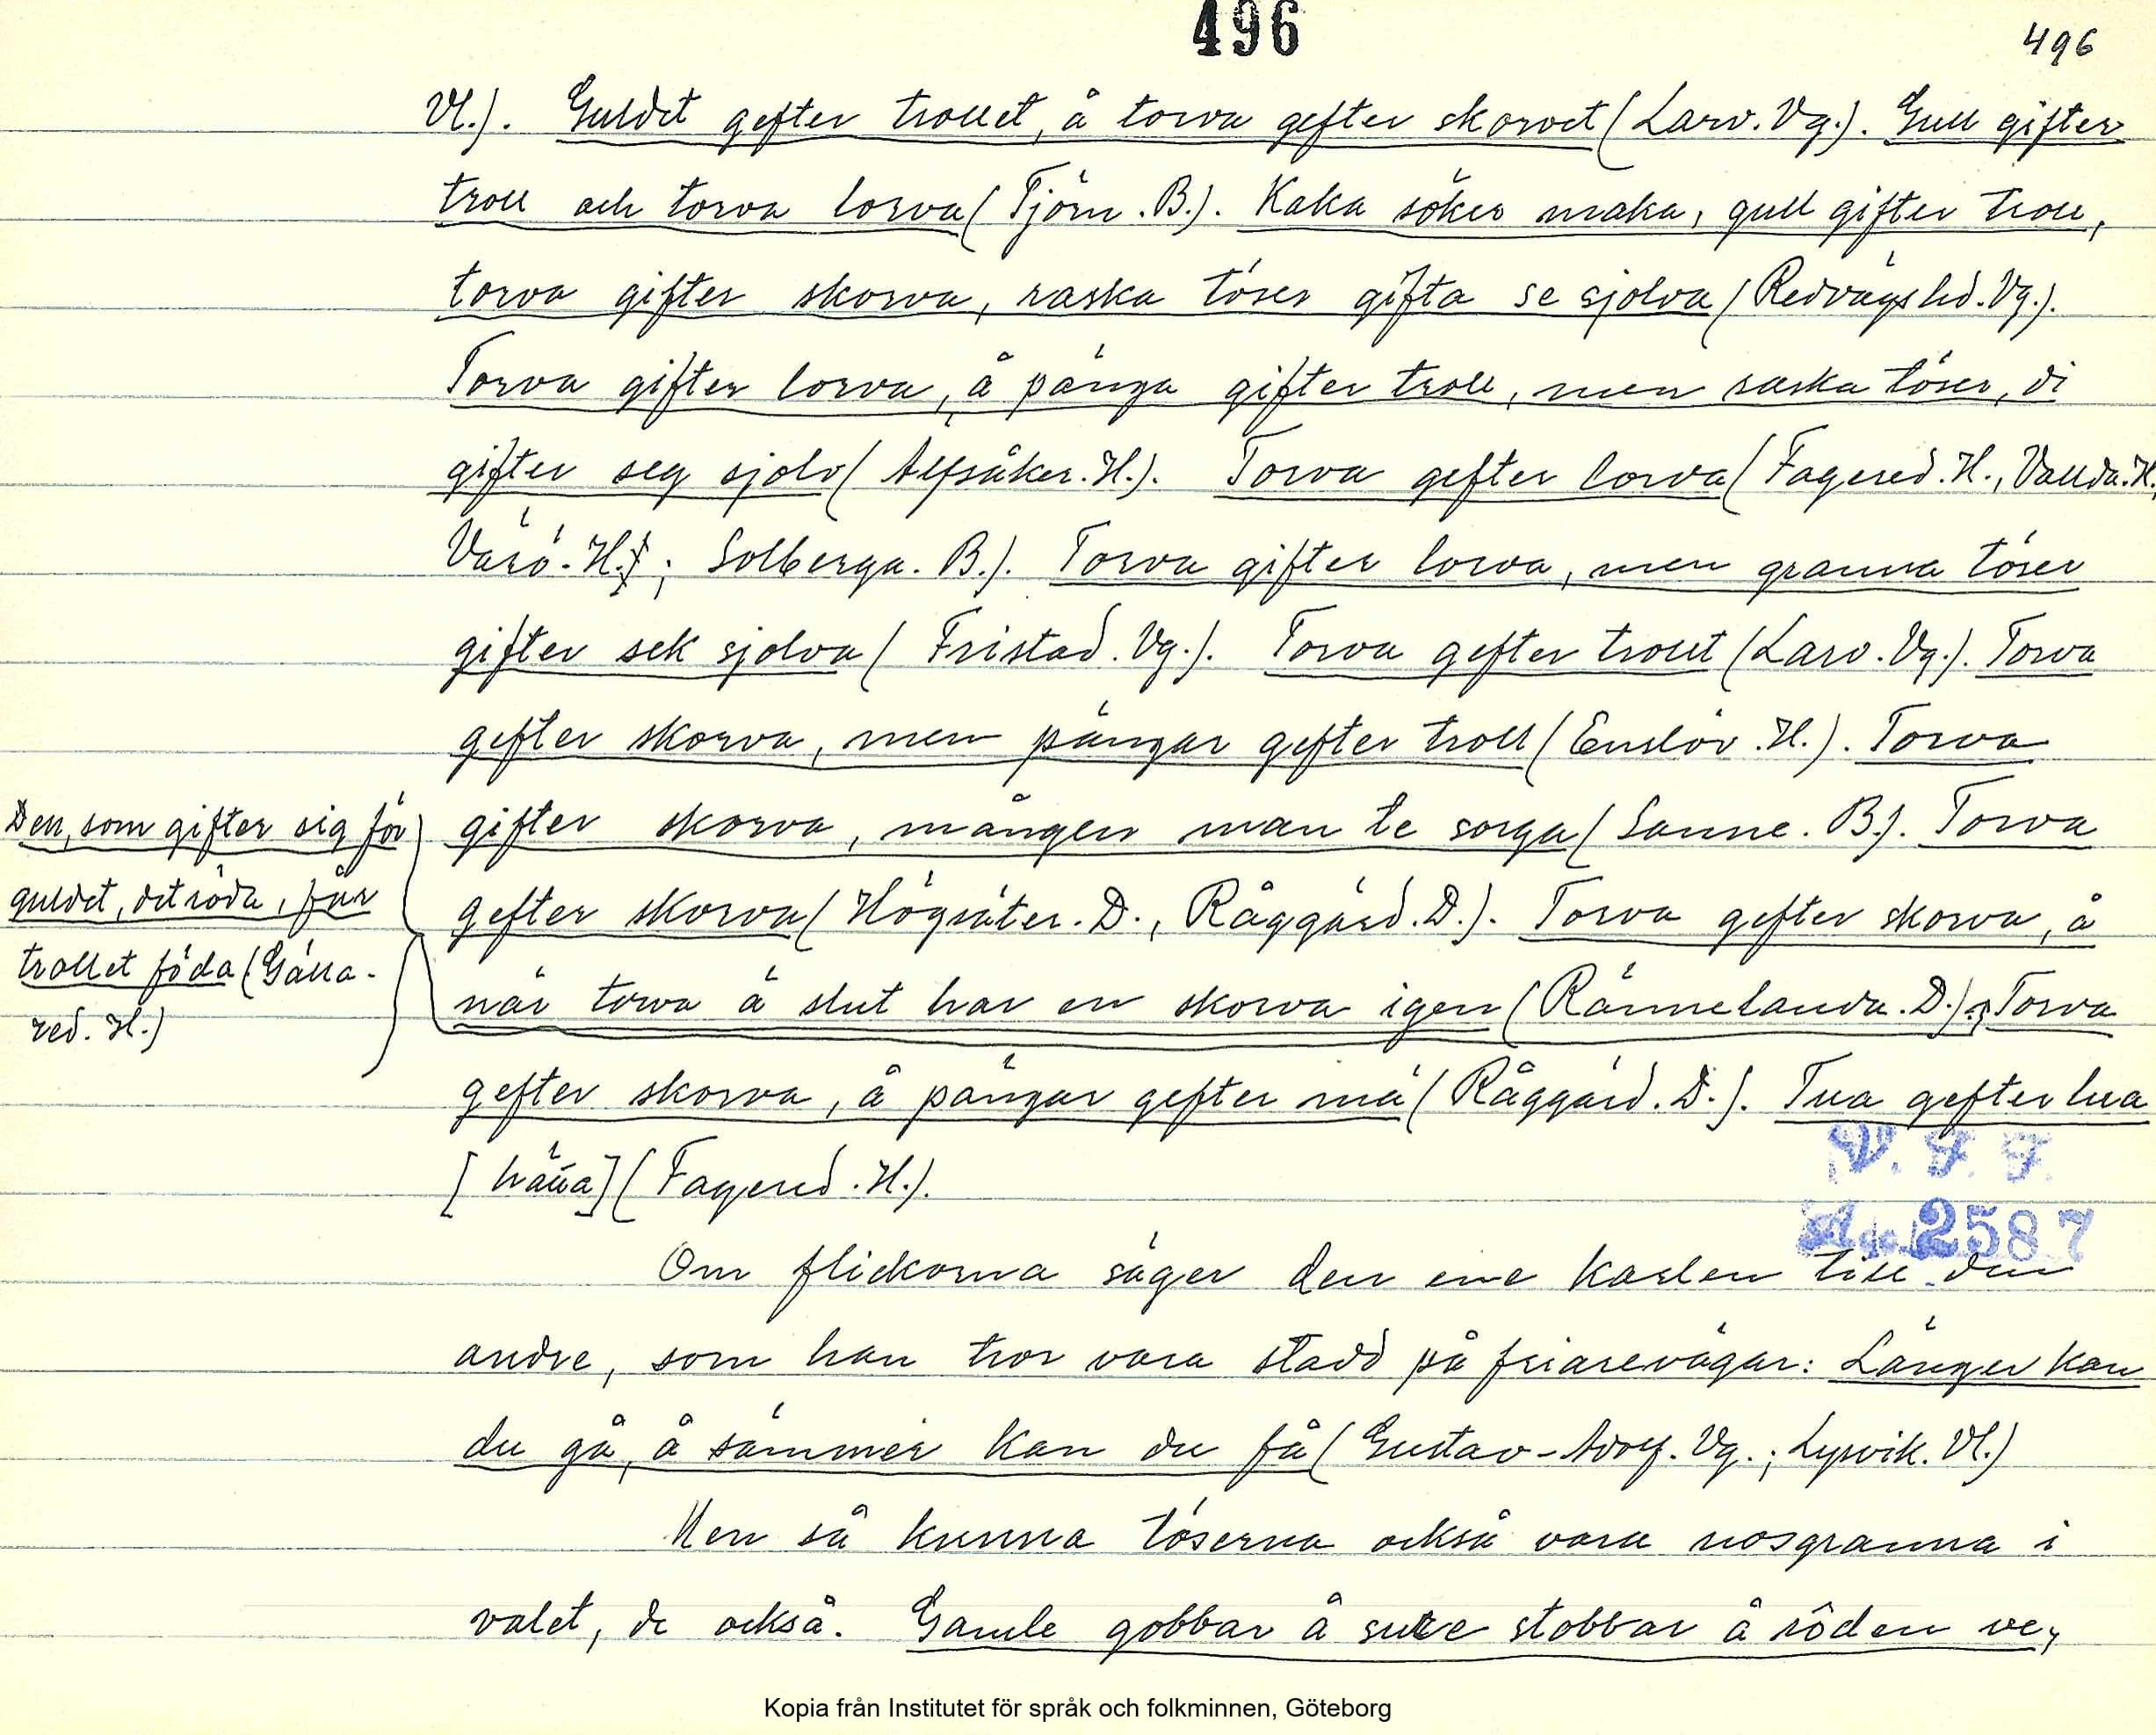 496
496
Vl.). Guldet gefter trollet, å torva gefter skorvet (Larv. Vg.). Gull gifter
troll och torva lorva (Tjörn. B.). Kaka söker maka, gull gifter troll,
torva gifter skorva, raska töser gifta se sjolva (Redvägs hd. Vg.).
Torva gifter lorva, å pänga gifter troll, men raska töser, di
gifter seg sjolv (Alfsåker. H.). Torva gefter lorva (Fagered. H., Vallda. H.,
Värö. H.; Solberga. B.). Torva gifter lorva, men granna töser
gifter sek sjolva (Fristad. Vg.). Torva gefter trollt (Larv. Vg.). Torva
gefter skorva, men pängar gefter troll (Enslöv. H.). Torva
gifter skorva, mången man te sorga (Sanne. B.). Torva
gefter skorva (Högsäter. D., Råggärd. D.). Torva gefter skorva, å
när torva ä slut har en skorva igen (Rännelanda. D.). Torva
gefter skorva, å pängar gefter mä (Råggärd. D.). Tua gefter lua
[häua] (Fagered. H.).
Den, som gifter sig för
guldet, det röda, får
trollet föda (Gälla-
red. H.)
V. F. F.
2587
Om flickorna säger den ene karlen till den
andre, som han tror vara stadd på friarevägar: Länger kan
du gå, å sämmer kan du få (Gustav-Adolf. Vg.; Lysvik. Vl.)
Men så kunna töserna också vara nosgranna i
valet, de också. Gamle gobbar å sure stobbar å röden ve,
Kopia från Institutet för språk och folkminnen, Göteborg